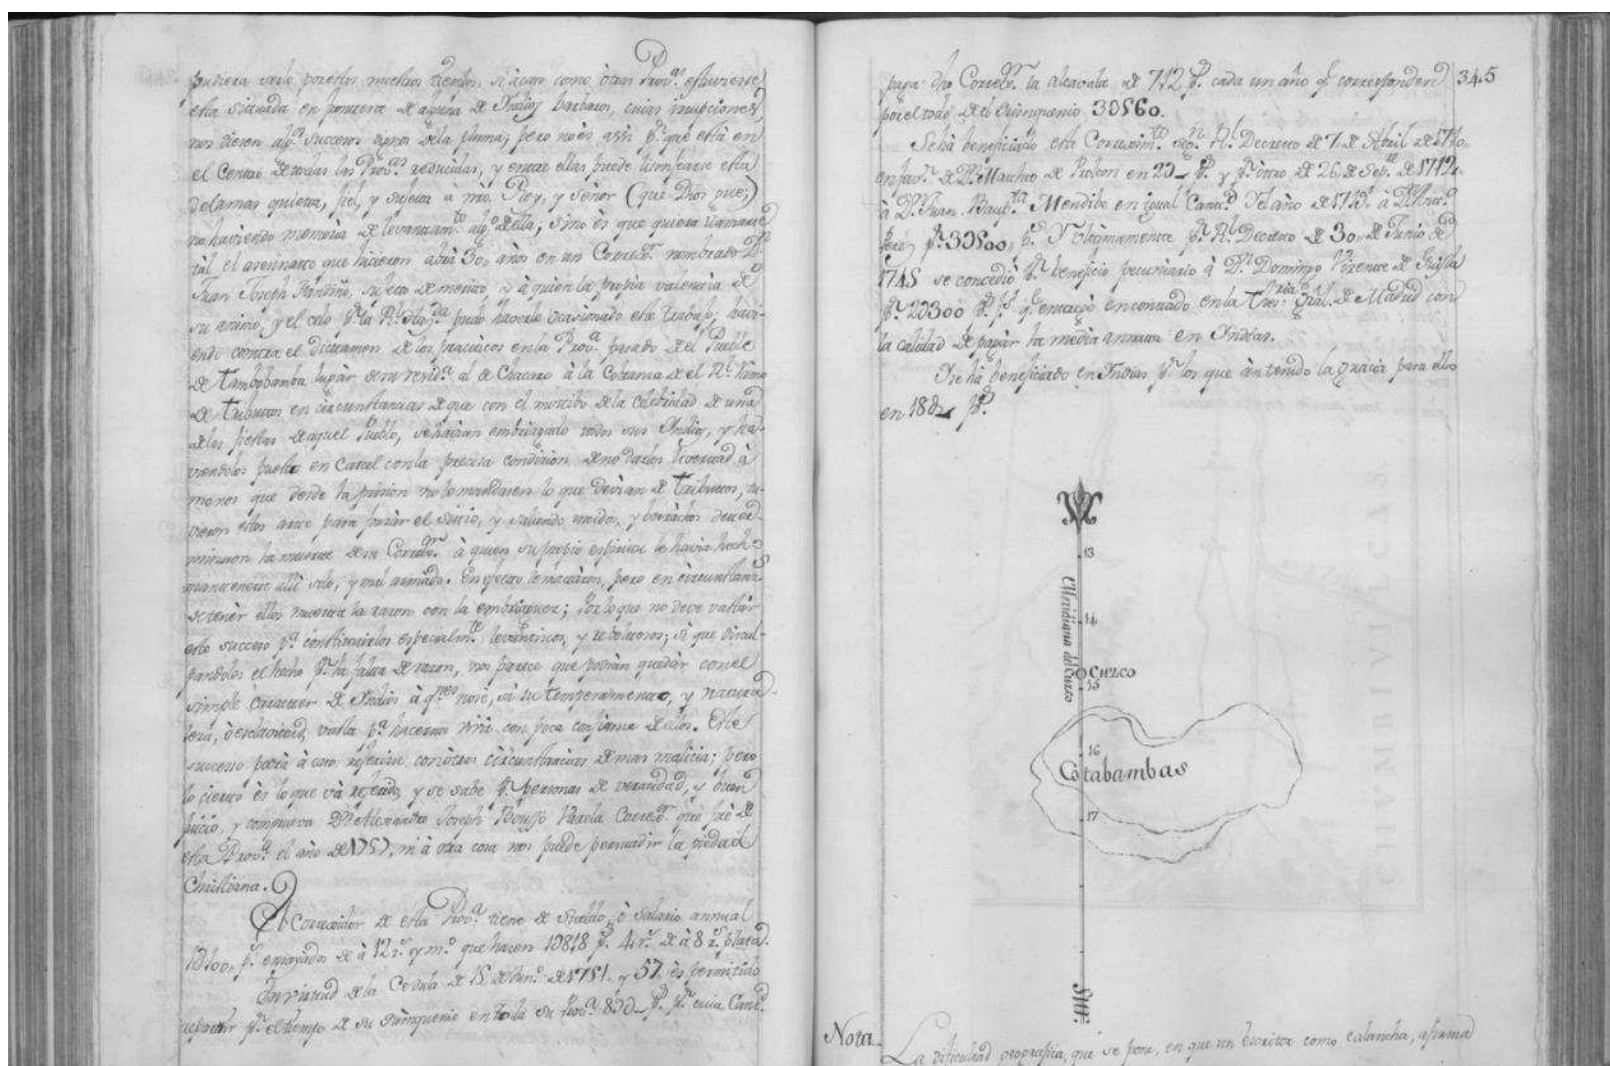 pudiera serlo por estos nuestros tiempos, si acaso como otras Prov.as estuviese
esta situada en frontera de alguna de Indios barbaros, cuias irrupciones
nos diesen alg.s successos dignos de la pluma; pero no es assi p.r que està en
el Centro de todas las Prov.as reducidas, y entre ellas puede lisonjearse esta
de la mas quieta, fiel, y sujeta à nro. Rey, y Señor (que Dios gue,)
no haviendo memoria de levantam.to alg.o de ella, sino es que quiera llamarse
tàl el asesinato que hicieron abrà 30, años en un Correg.r nombrado D.n
Juan Joseph Fandiño, sujeto de merito, y à quien la propia valentia de
su animo, y el celo p.r la R.l Haz.da pudo haverle ocasionado este trabajo; havi-
endo contra el Dictamen de los practicos en la Prov.a pasado de el Pueblo
de Tambobamba lugàr de su resid.a al de Chacaro à la Cobranza de el R.l Ramo
de Tributos en circunstancias de que con el motibo de la celebridad de una
de las fiestas de aquel Pueblo, se havian embriagado todos sus Indios, y ha-
viendolos puesto en Carcel con la precisa condicion de no darlos livertad à
menos que desde la prision no lo mandasen lo que devian de Tributos, tu-
vieron estos arte para forzàr el sitio, y saliendo unidos, y borrachos deter-
minaron la muerte de su Correg.r à quien su propio espiritu le havia hecho
mantenerse alli solo, y mal armado. En efecto le mataron, pero en circunstancias
de tenèr ellos muerta la razon con la embriaguez; Por lo que no deve vastàr
este successo p.a constituirlos especialm.te levantiscos, y reboltosos; si que discul-
pandoles el hecho p.r la falta de razon, nos parece que podràn quedàr con el
simple caracter de Indios à q.nes nose, si su temperamento, y natura-
leza, ò esclavitud, vasta p.a hacernos vivir con poca confianza de ellos. Este
successo podrà à caso, referirse con otras circunstancias de mas malicia; pero
lo cierto ès lo que và referido, y se sabe p.r personas de veracidad, y buen
juicio, y comprueva D.n Alexandro Joseph Bousso Varela Correg.r que fuè de
esta Prov.a el año de 1757, ni à otra cosa nos puede persuadir la piedad
Christiana.
El Corregidor de esta Prov.a tiene de sueldo, ò salario annual
1D100, p.s ensayados de à 12 r.s y m.o que hacen 1D818 p.s 4 r.s de à 8 r.s plata.
En virtud de la Cedula de 15 de Jun.o de 1751. y 57. ès permitido
repartir p.r el tiempo de su Quinquenio en toda su Prov.a 89D_ p.s p.r cuia Cant.d
345
paga dho Correg.r la alcavala de 712 p.s cada un año q.e corresponden
por el todo de el Quinquenio 3D560.
Se hà beneficiado este Corregim.to seg.n R.l Decreto de 7. de Abril de 1710.
en fav.r de D.n Matheo de Proleon en 2D_ p.s y p.r otro de 26 de Sep.re de 1712.
à D.n Juan Baup.ta Mendibe en igual Cant.d Y el año de 1713. à D.n Ant.o
Perez p.r 3D500, p.s Y ultimamente p.r R.l Decreto de 30, de Junio de
1745 se concediò p.r beneficio pecuniario à D.n Domingo Vicente de Guisla
p.r 2D300 p.s f.s q.e entregò en contado en la Thes.ria Gral. de Madrid con
la calidad de pagàr la media annata en Indias.
Se hà beneficiado en Indias p.r los que àn tenido la gracia para ello
en 18D_ p.s
13
14
Meridiana del Cuzco
Cuzco
15
16
Cotabambas
17
Sur.
Nota_ La dificultad geografica, que se pone, en que un escritor como Calancha, afirma